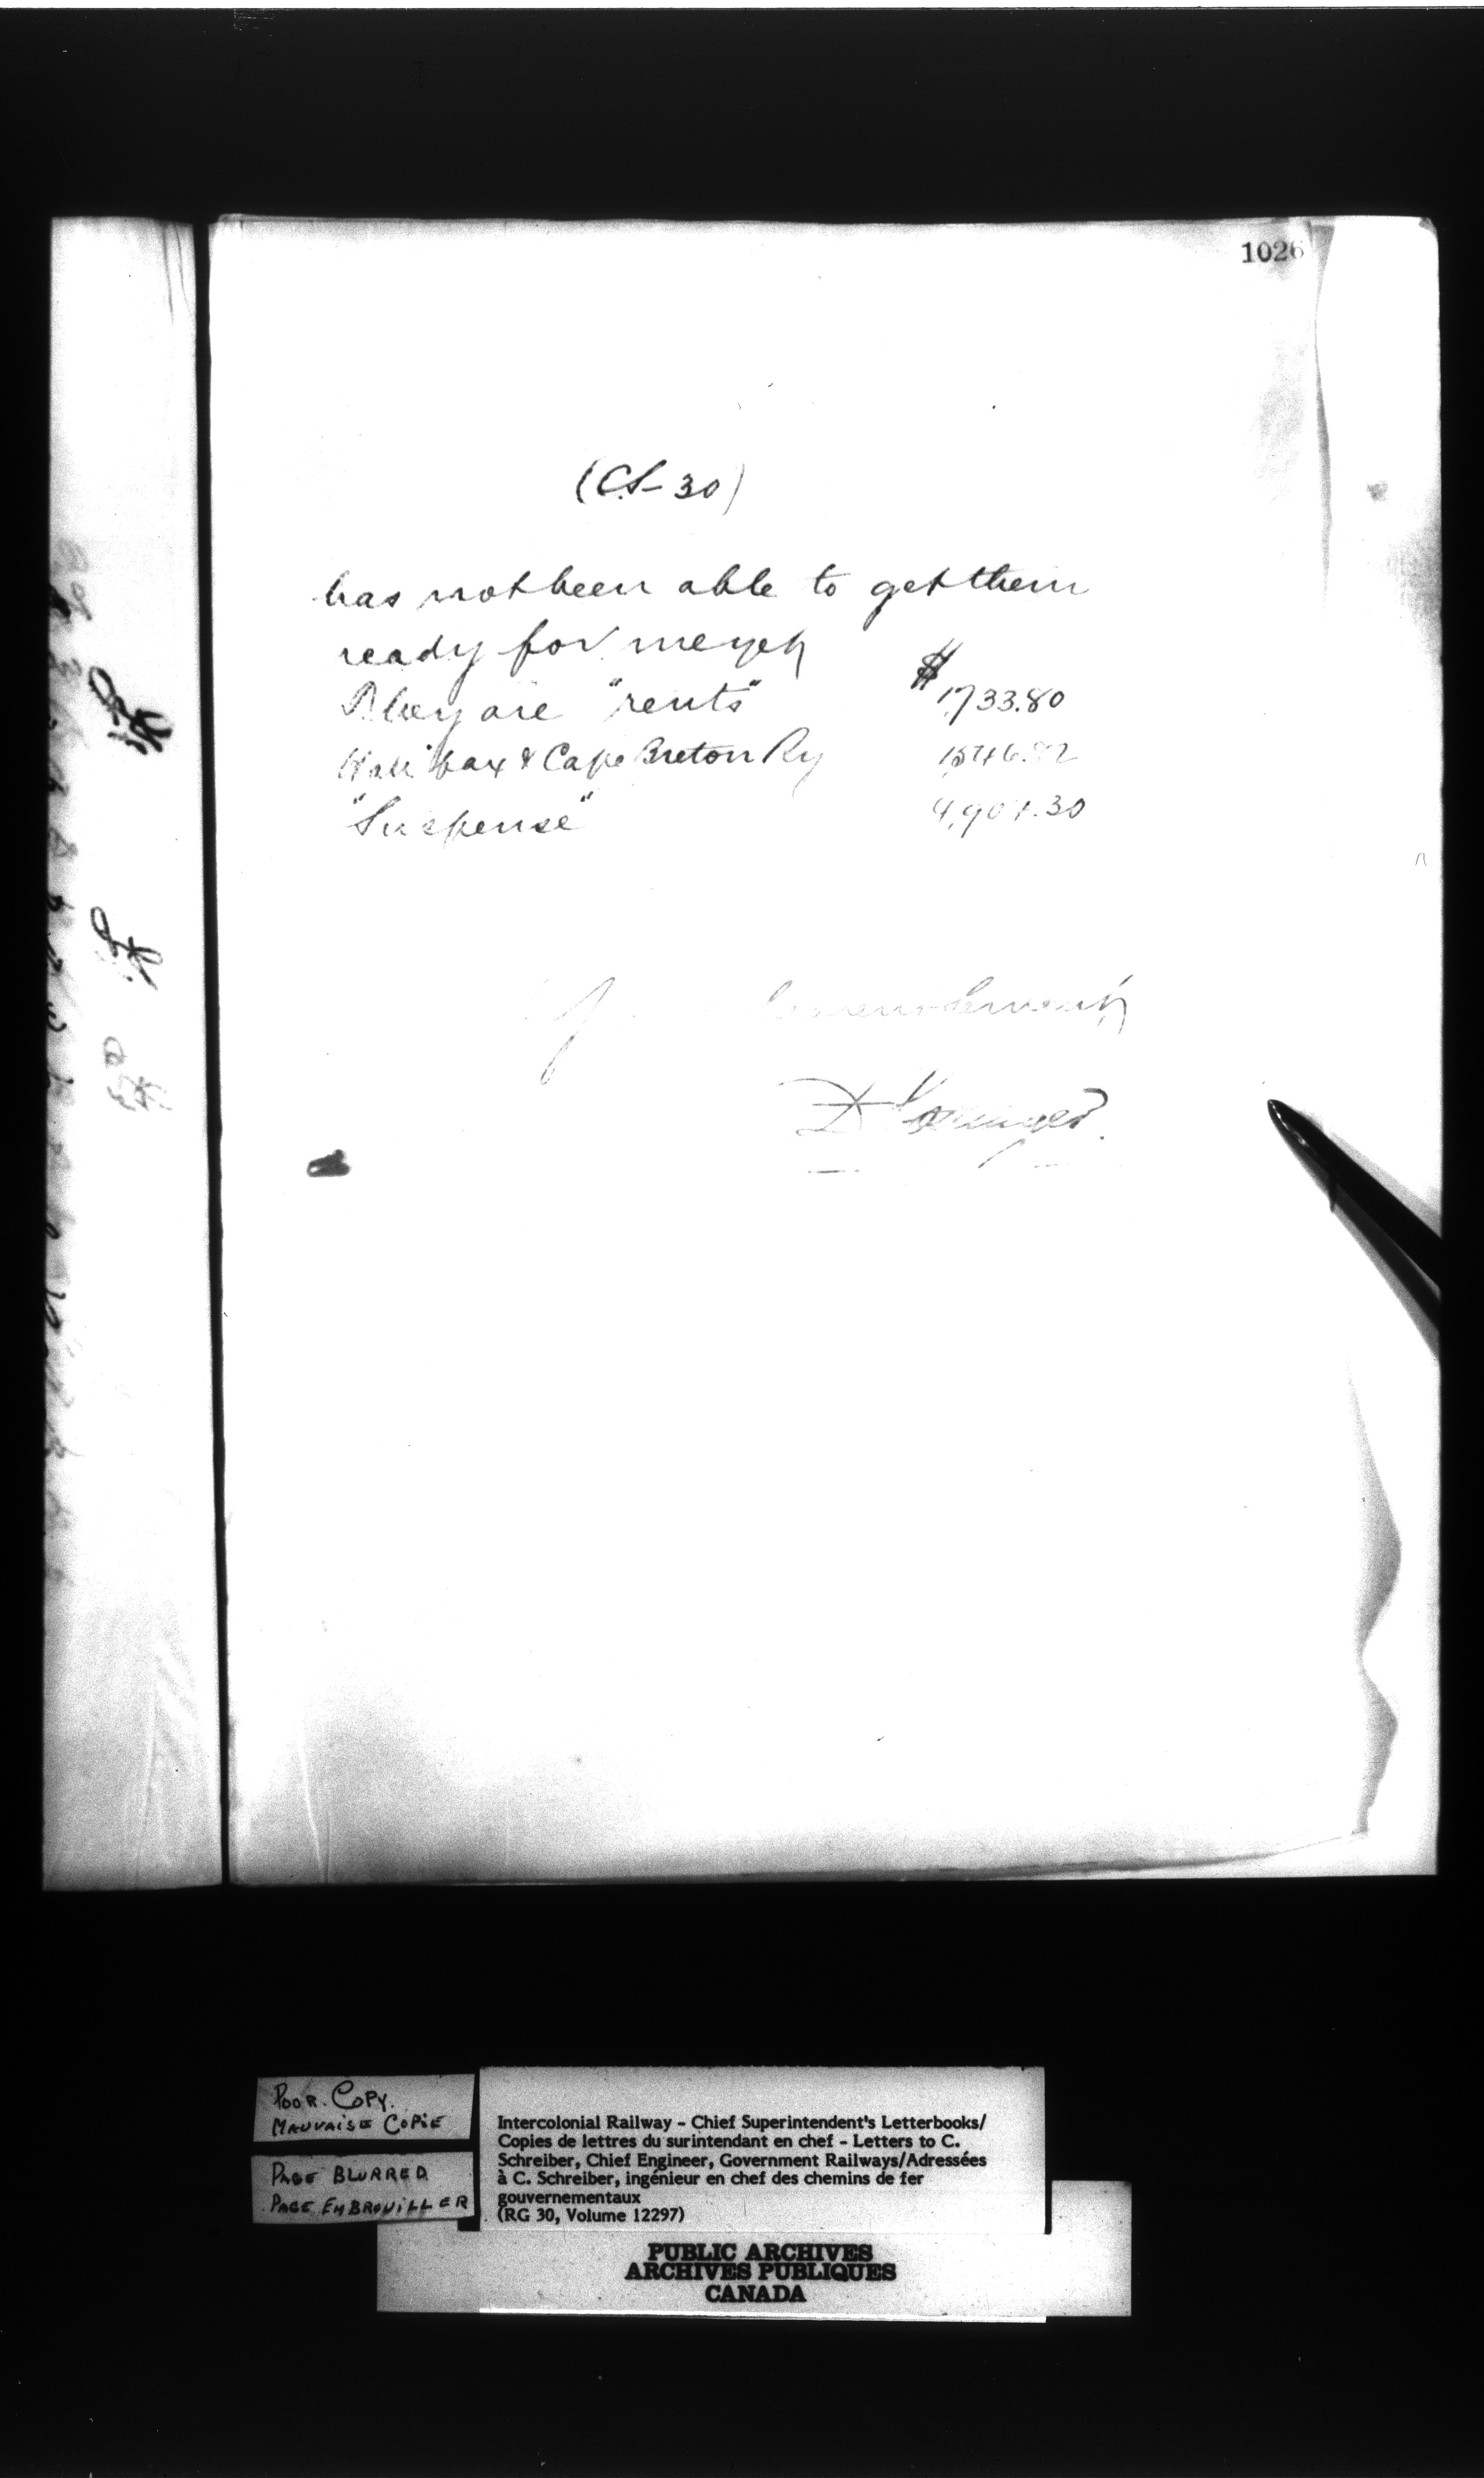 1026
(C.S- 30)
has not been able to get them
ready for me yet
They are "rents" $ 1,733.80
Halifax & Cape Breton Ry
"Suspense"
obedient Servant
D Pottinger
POOR COPY.
MAUVAISE COPIE
PAGE BLURRED
PAGE EMBROUILLER
Intercolonial Railway - Chief Superintendent's Letterbooks/
Copies de lettres du surintendant en chef - Letters to C.
Schreiber, Chief Engineer, Government Railways/Adressées
à C. Schreiber, ingénieur en chef des chemins de fer
gouvernementaux
(RG 30, Volume 12297)
PUBLIC ARCHIVES
ARCHIVES PUBLIQUES
CANADA